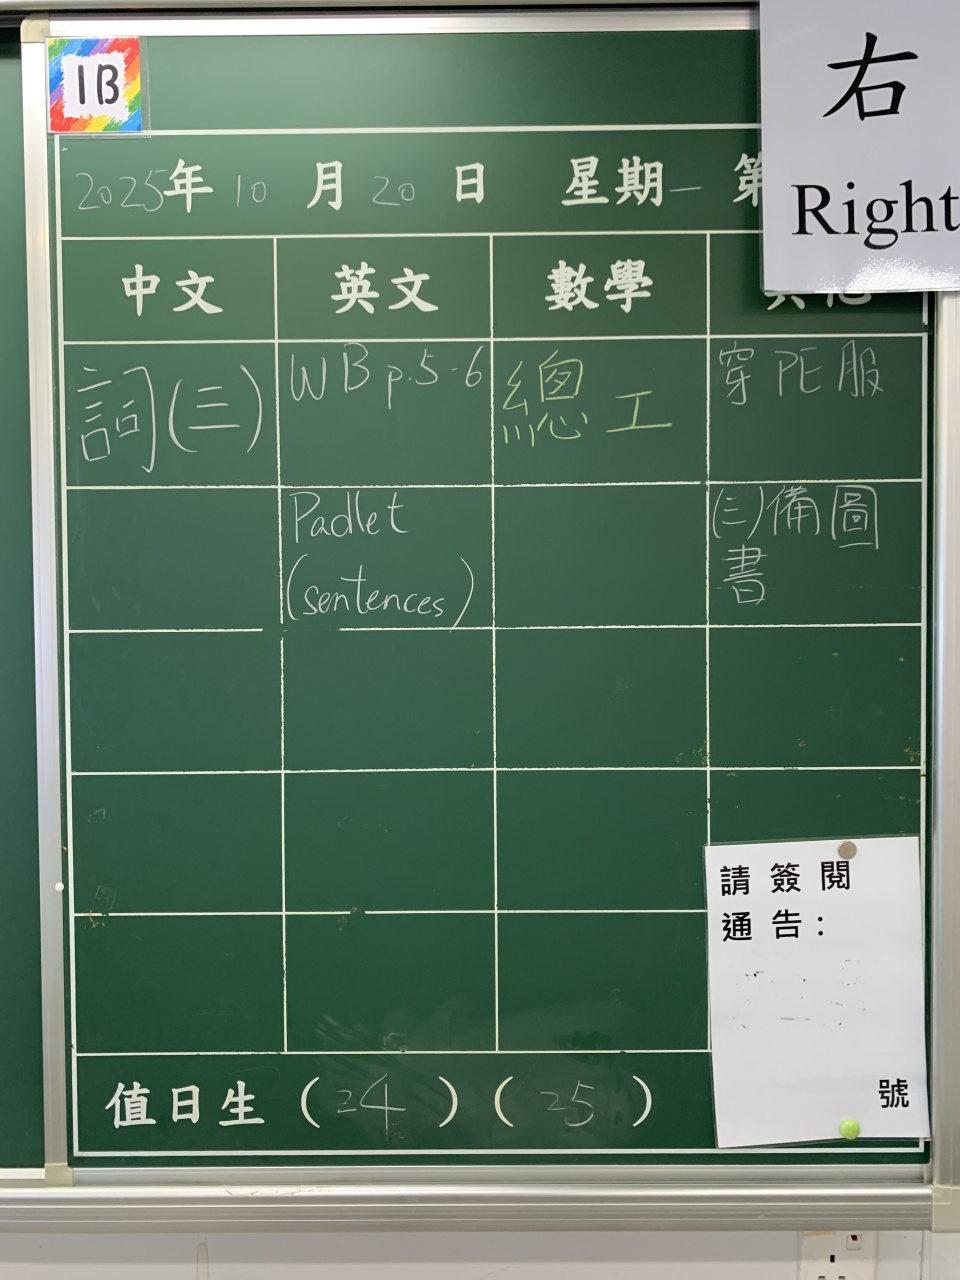 1B
右
Right
2025年 10 月 20 日 星期一 第
中文 英文 數學 其他
詞(三)
WB p.5-6
總工
穿PE服
Padlet
(sentences)
(三)備圖
書
請簽閱
通告：
號
值日生 ( 24 ) ( 25 )